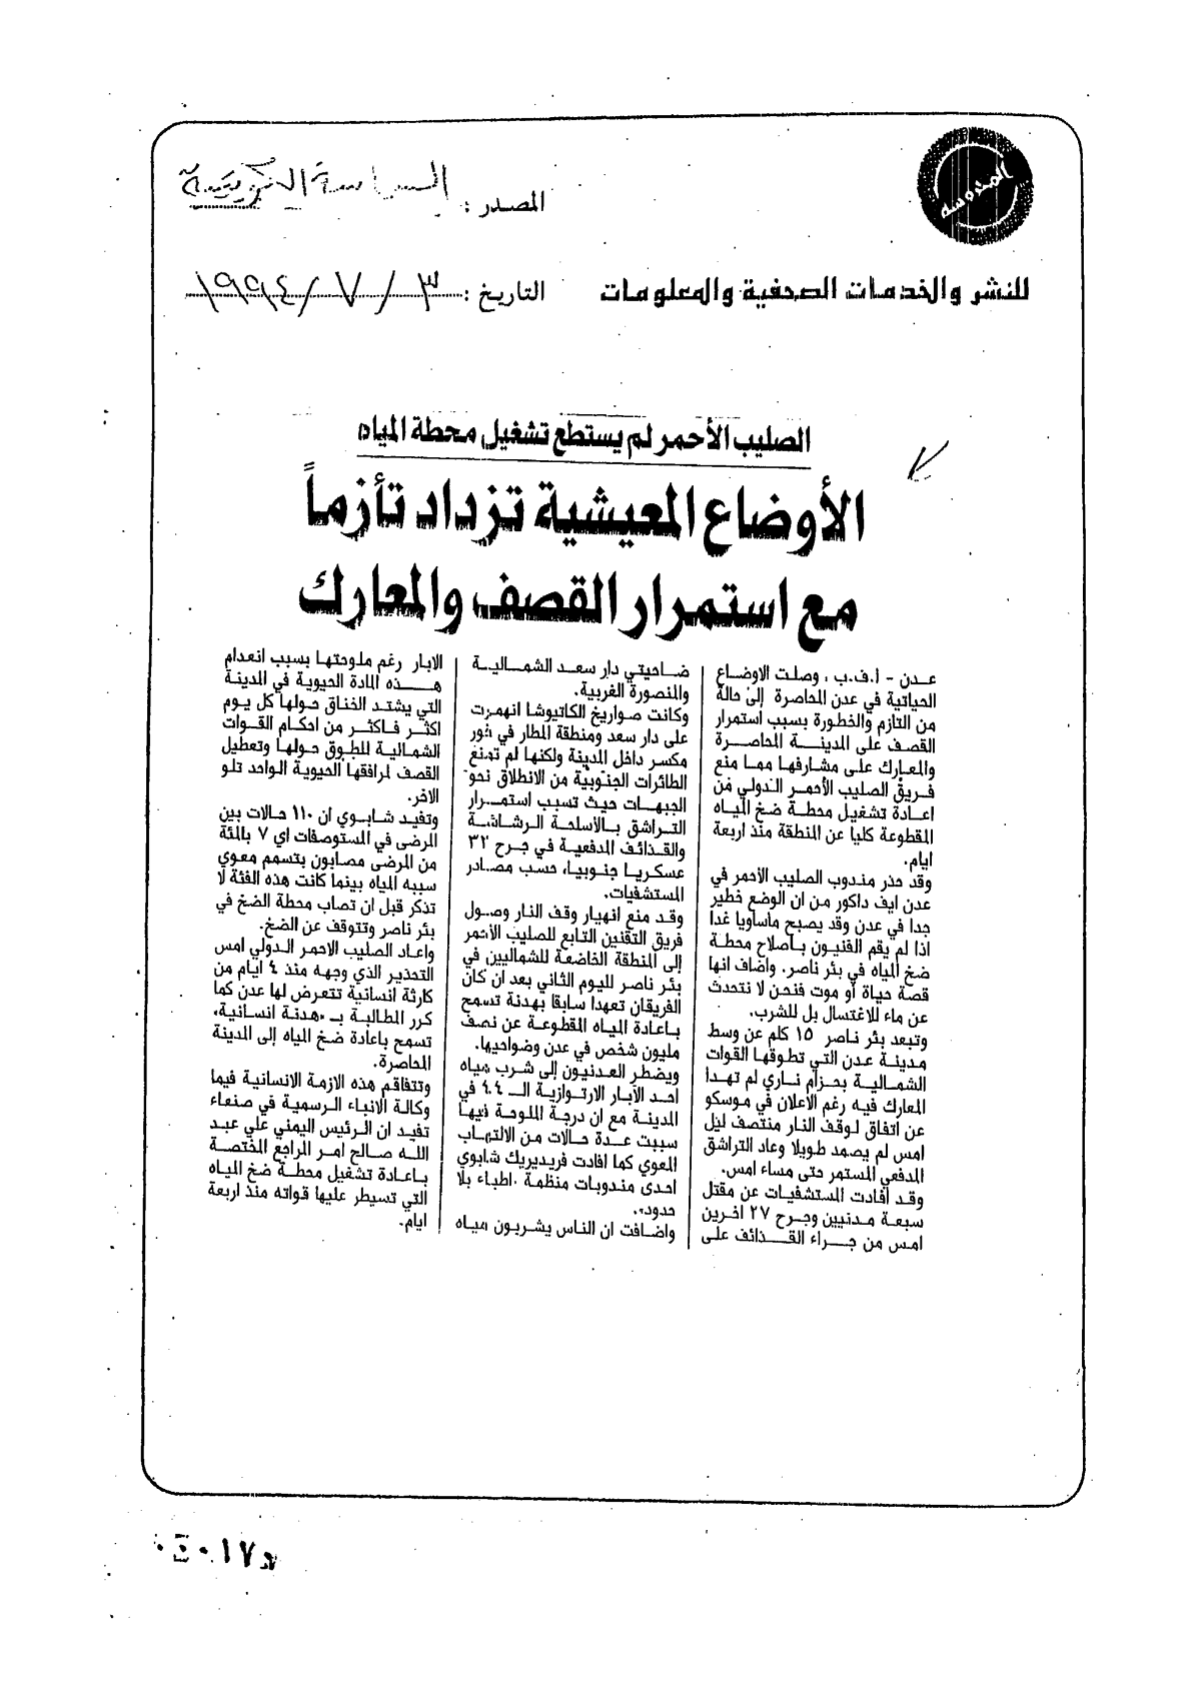 المصدر : السياسة الكويتية
للنشر والخدمات الصحفية والمعلومات
التاريخ : ٣ / ٧ / ١٩٩٤
الصليب الأحمر لم يستطع تشغيل محطة المياه
الأوضاع المعيشية تزداد تأزماً
مع استمرار القصف والمعارك
عدن - أ.ف.ب ، وصلت الاوضاع
الحياتية في عدن المحاصرة إلى حالة
من التازم والخطورة بسبب استمرار
القصف على المدينة المحاصرة
والمعارك على مشارفها مما منع
فريق الصليب الأحمر الدولي من
اعادة تشغيل محطة ضخ المياه
المقطوعة كليا عن المنطقة منذ اربعة
ايام.
وقد حذر مندوب الصليب الأحمر في
عدن ايف داكور من ان الوضع خطير
جدا في عدن وقد يصبح ماساويا غدا
اذا لم يقم الفنيون باصلاح محطة
ضخ المياه في بئر ناصر. واضاف انها
قصة حياة أو موت فنحن لا نتحدث
عن ماء للاغتسال بل للشرب.
وتبعد بئر ناصر ١٥ كلم عن وسط
مدينة عدن التي تطوقها القوات
الشمالية بحزام ناري لم تهدا
المعارك فيه رغم الاعلان في موسكو
عن اتفاق لوقف النار منتصف ليل
امس لم يصمد طويلا وعاد التراشق
الدفعي المستمر حتى مساء امس.
وقد أفادت المستشفيات عن مقتل
سبعة مدنيين وجرح ٢٧ اخرين
امس من جراء القذائف على
ضاحيتي دار سعد الشمالية
والمنصورة الغربية.
وكانت صواريخ الكاتيوشا انهمرت
على دار سعد ومنطقة المطار في خور
مكسر داخل المدينة ولكنها لم تمنع
الطائرات الجنوبية من الانطلاق نحو
الجبهات حيث تسبب استمرار
التراشق بالاسلحة الرشاشة
والقذائف المدفعية في جرح ٣٢
عسكريا جنوبيا، حسب مصادر
المستشفيات.
وقد منع انهيار وقف النار وصول
فريق التقنين التابع للصليب الأحمر
إلى المنطقة الخاضعة للشماليين في
بئر ناصر لليوم الثاني بعد ان كان
الفريقان تعهدا سابقا بهدنة تسمح
باعادة المياه المقطوعة عن نصف
مليون شخص في عدن وضواحيها.
ويضطر العدنيون إلى شرب مياه
احد الآبار الارتوازية الـ ٤٤ في
المدينة مع ان درجة الملوحة فيها
سببت عدة حالات من الالتهاب
المعوي كما افادت فريديريك شابوي
احدى مندوبات منظمة ،اطباء بلا
حدود،.
واضافت ان الناس يشربون مياه
الابار رغم ملوحتها بسبب انعدام
هذه المادة الحيوية في المدينة
التي يشتد الخناق حولها كل يوم
اكثر فاكثر من احكام القوات
الشمالية للطوق حولها وتعطيل
القصف لمرافقها الحيوية الواحد تلو
الاخر.
وتفيد شابوي ان ١١٠ حالات بين
المرضى في المستوصفات اي ٧ بالمئة
من المرضى مصابون بتسمم معوي
سببه المياه بينما كانت هذه الفئة لا
تذكر قبل ان تصاب محطة الضخ في
بئر ناصر وتتوقف عن الضخ.
واعاد الصليب الاحمر الدولي امس
التحذير الذي وجهه منذ ٤ ايام من
كارثة انسانية تتعرض لها عدن كما
كرر المطالبة بـ ،هدنة انسانية،
تسمح باعادة ضخ المياه إلى المدينة
المحاصرة.
وتتفاقم هذه الازمة الانسانية فيما
وكالة الانباء الرسمية في صنعاء
تفيد ان الرئيس اليمني علي عبد
الله صالح امر المراجع المختصة
باعادة تشغيل محطة ضخ المياه
التي تسيطر عليها قواته منذ اربعة
ايام.